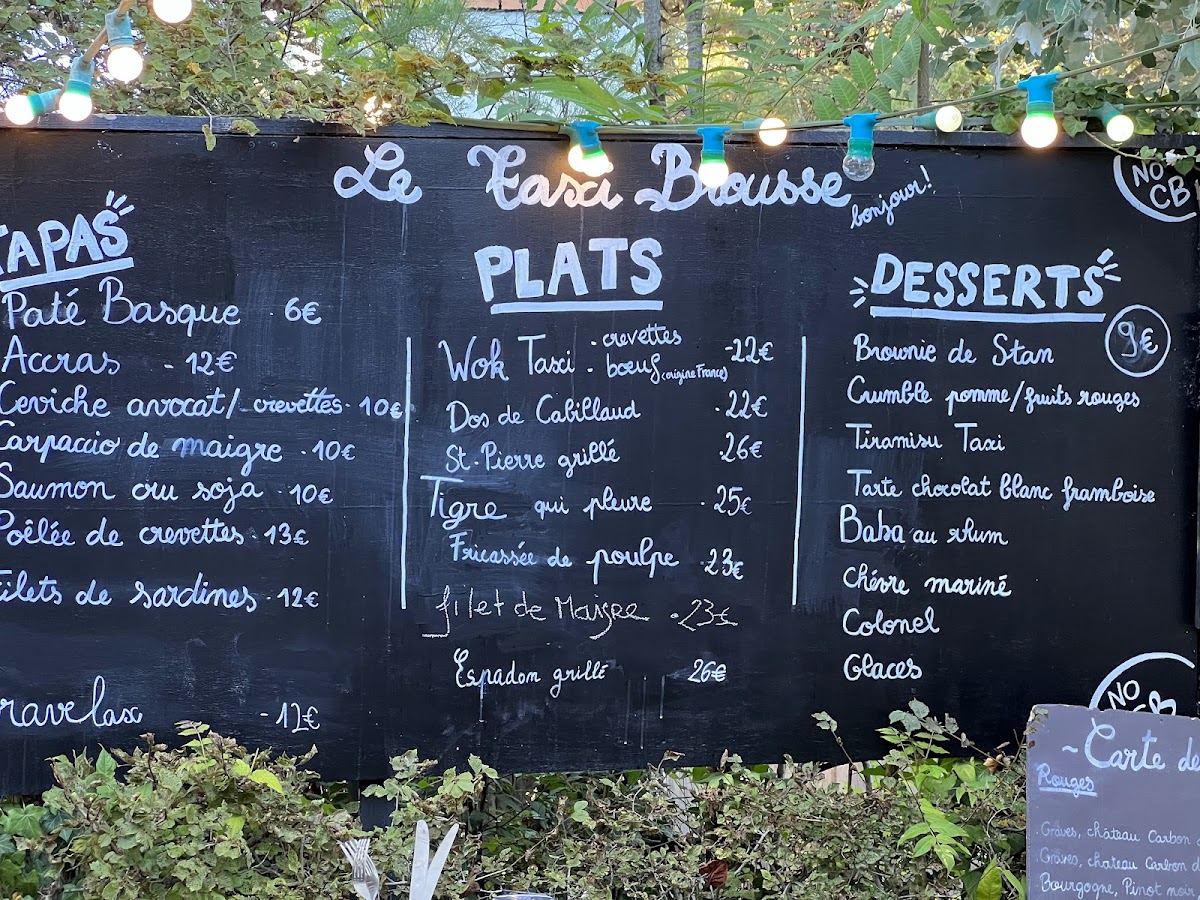 Le Taxi Brousse
bonjour!
NO
CB
TAPAS
Paté Basque . 6€
Accras - 12€
Ceviche avocat/crevettes. 10€
Carpaccio de maigre . 10€
Saumon cru soja . 10€
Poêlée de crevettes. 13€
Filets de sardines . 12€
Gravelax - 12€
PLATS
Wok Taxi . crevettes -22€
. bœuf (origine France)
Dos de Cabillaud . 22€
St. Pierre grillé . 26€
Tigre qui pleure . 25€
Fricassée de poulpe . 23€
filet de Maigre . 23€
Espadon grillé 26€
DESSERTS
9€
Brownie de Stan
Crumble pomme/fruits rouges
Tiramisu Taxi
Tarte chocolat blanc framboise
Baba au rhum
Chévre mariné
Colonel
Glaces
NO
~Carte de
Rouges
. Graves, château Carbon
. Graves, chateau Carbon d
. Bourgogne, Pinot noir